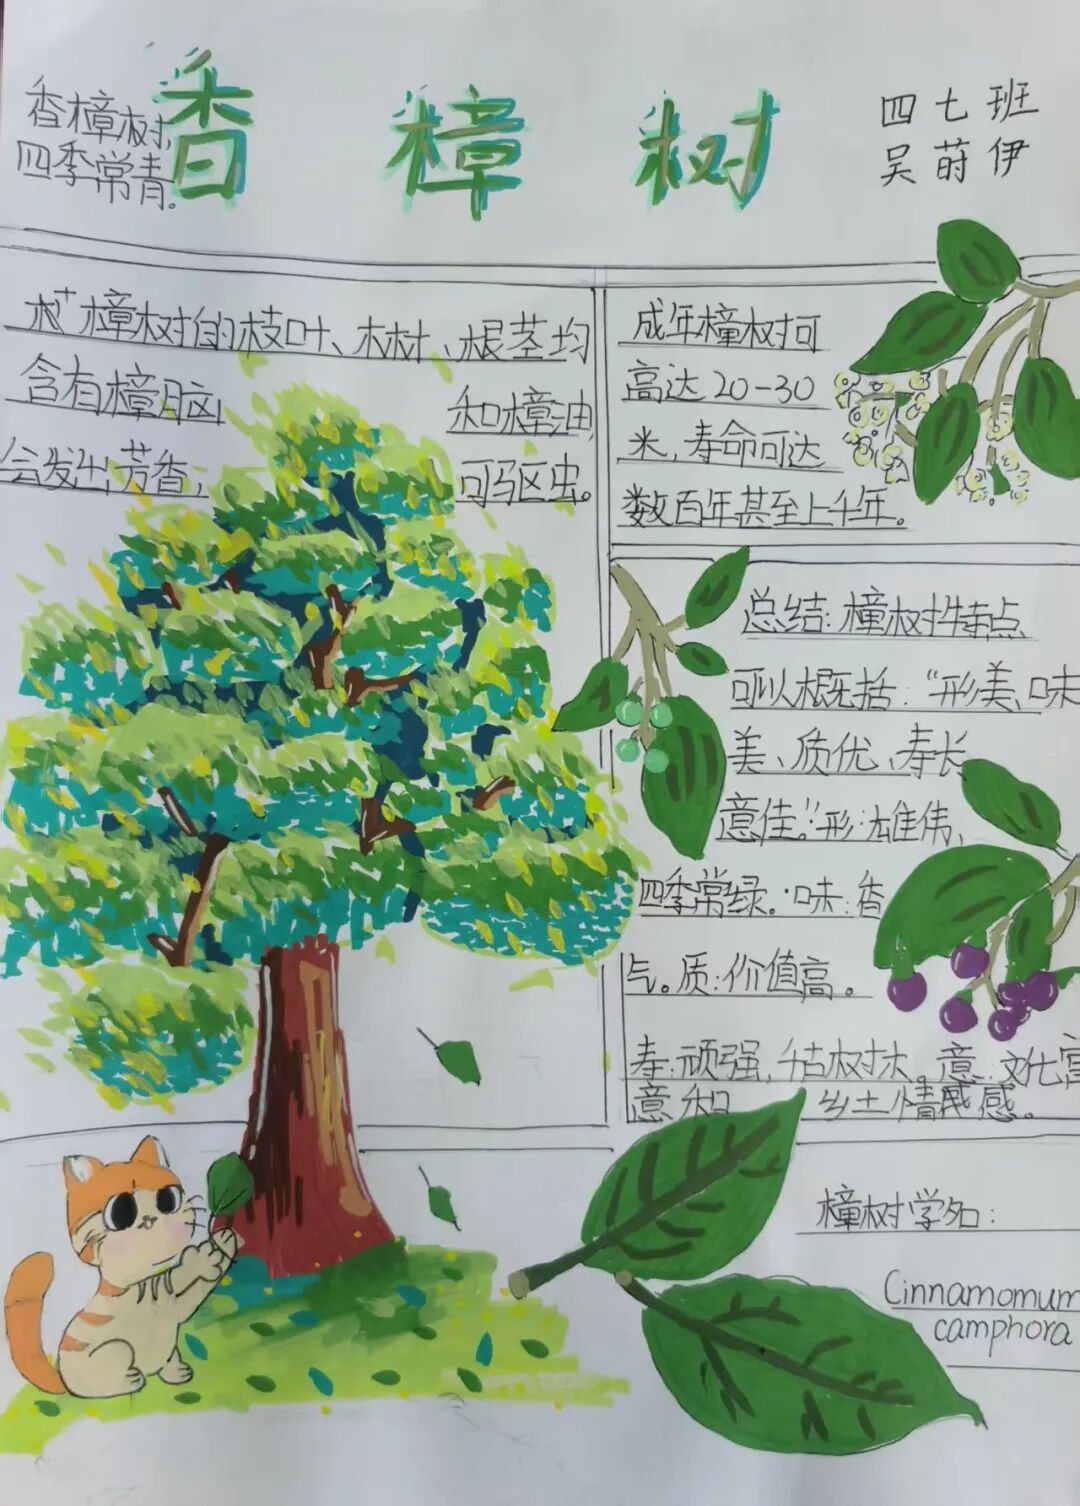 香樟树
香樟树,
四季常青。
四七班
吴莳伊
樟树的枝叶、木材、根茎均
含有樟脑 和樟油,
会发出芳香, 可驱虫。
成年樟树可
高达20-30
米,寿命可达
数百年甚至上千年。
总结:樟树特点
可以概括:“形美、味
美、质优、寿长
意佳。”形:雄伟、
四季常绿。味:香
气。质:价值高。
寿:顽强,千古树木。意:文化富
意和 乡土情感。
樟树学名:
Cinnamomum
camphora